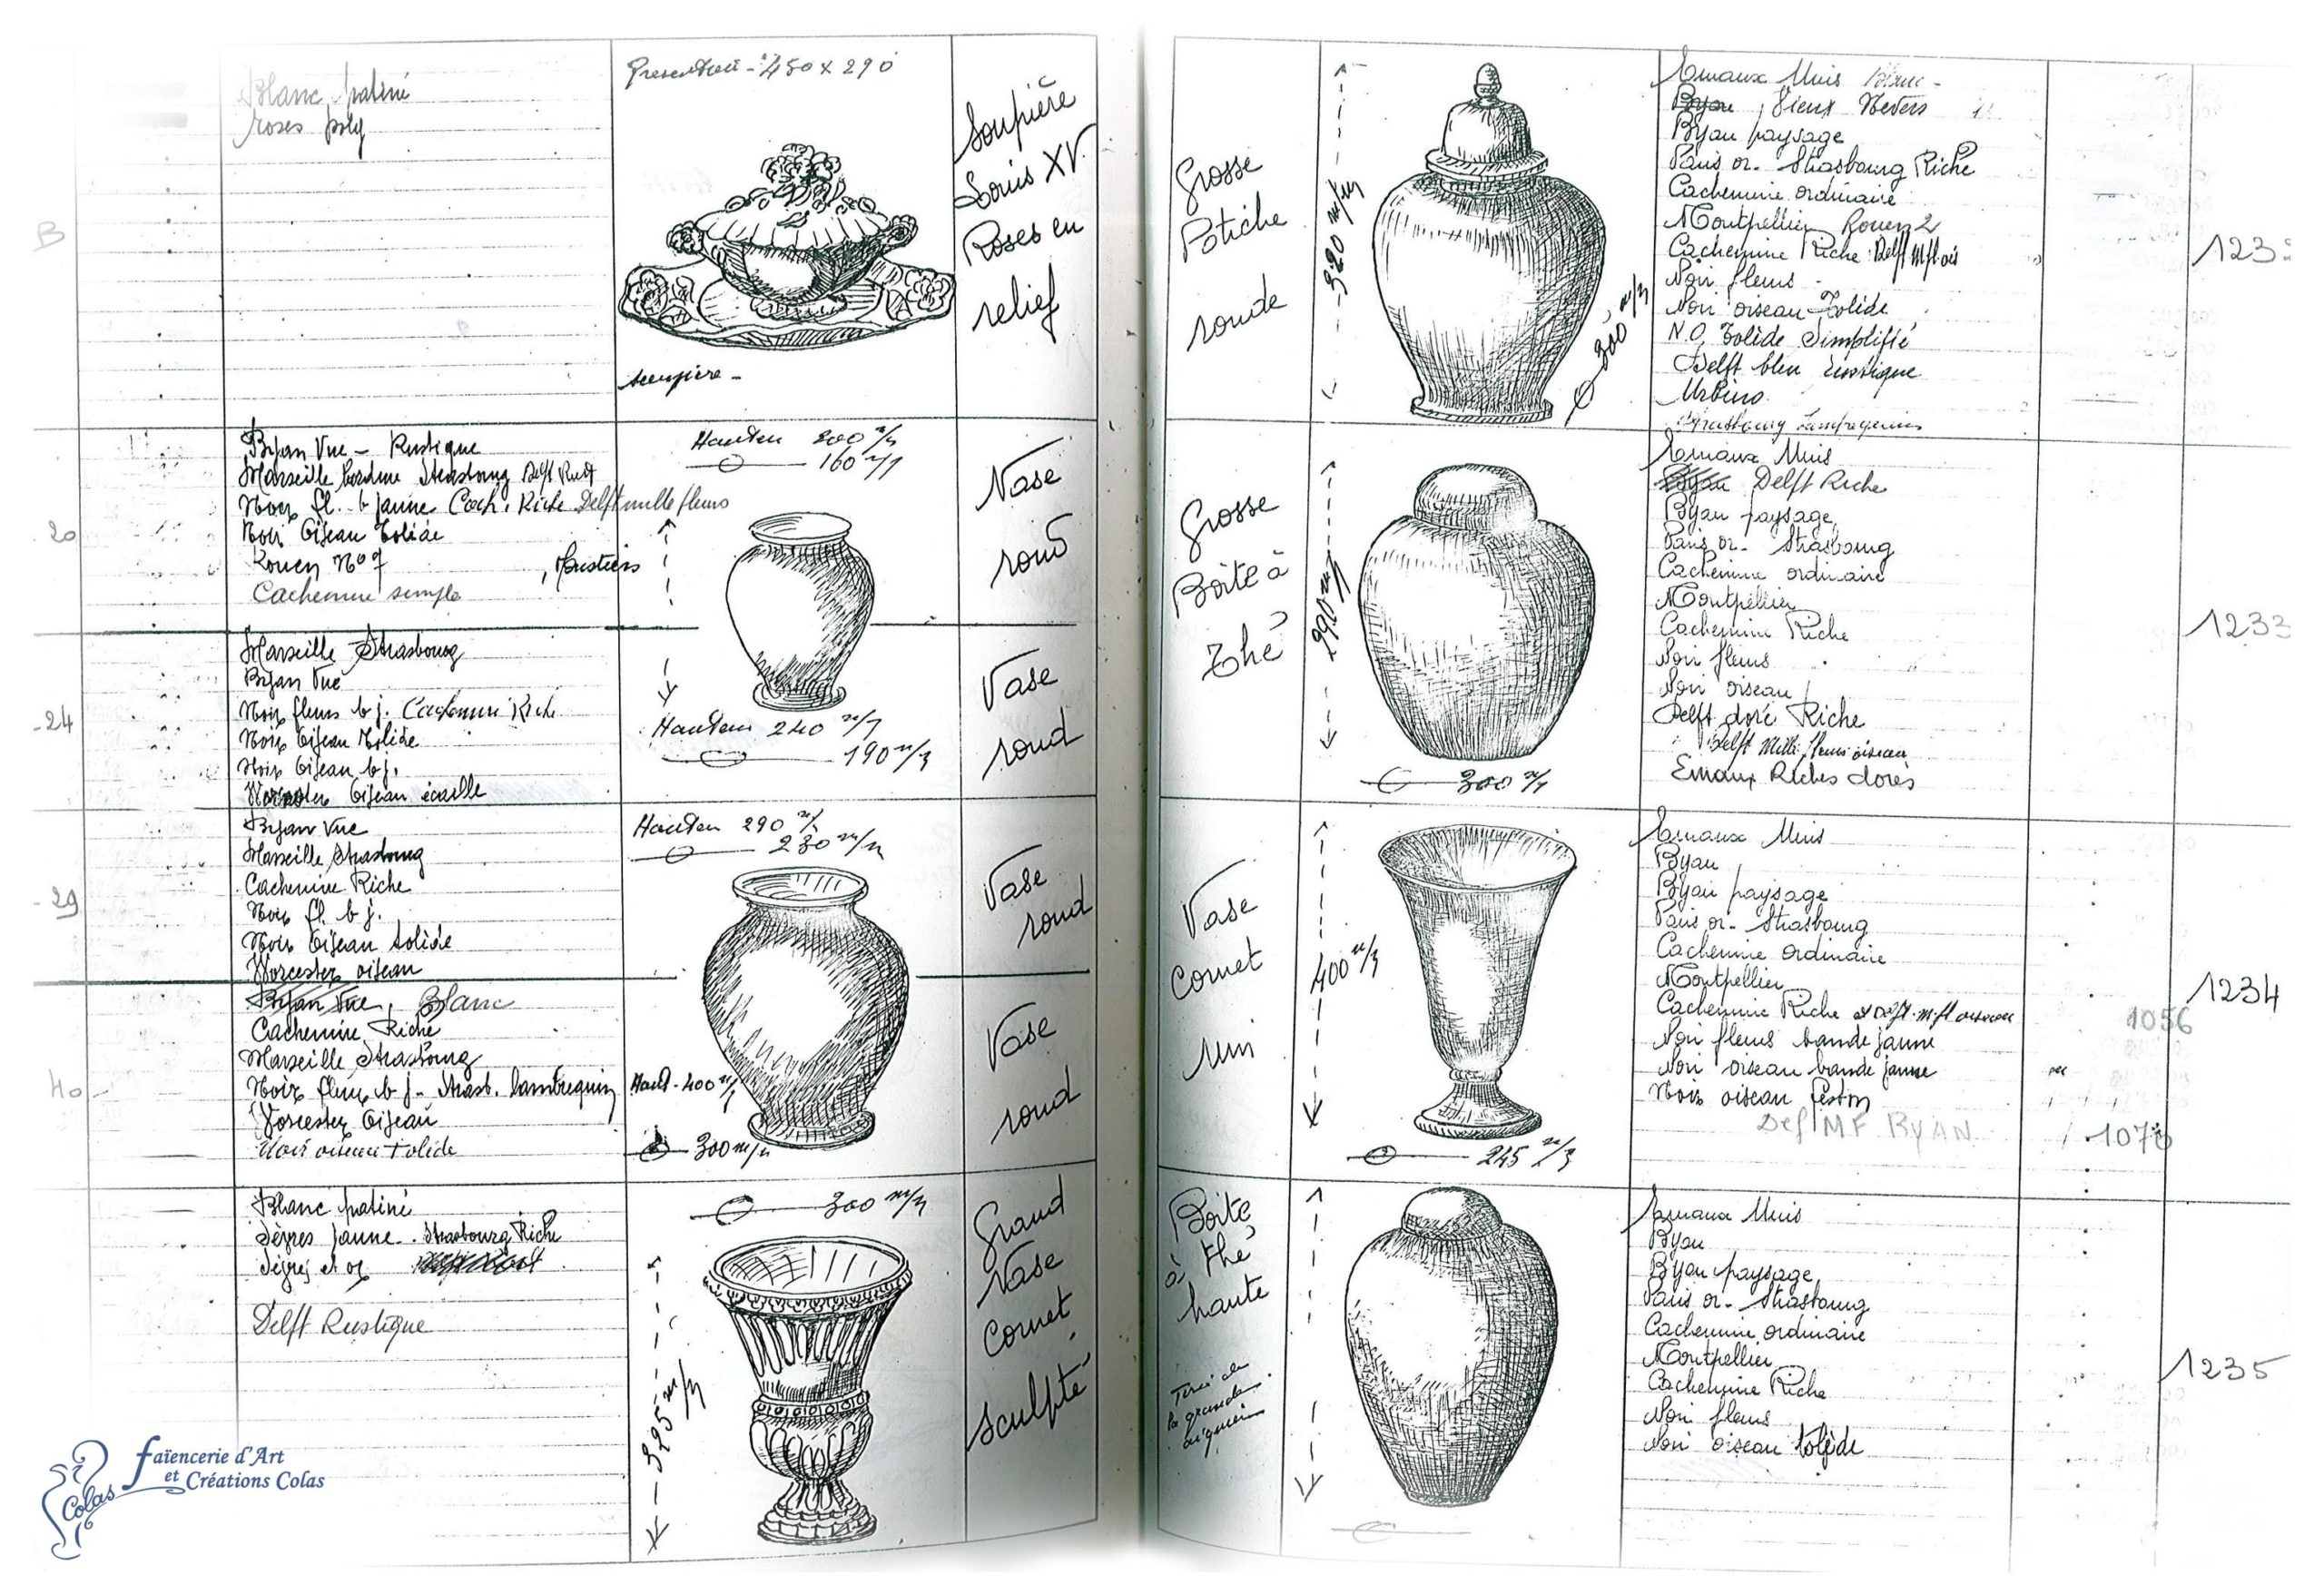 Blanc patiné
roses poly
Presentoir - 450 x 290
soupière -
Soupière
Louis XV
Roses en
relief
B
Byan Vue - Rustique
Marseille bordure Strasbourg Delft Rust
Noir fl. b jaune Cach. Riche Delft mille fleurs
Noir Oiseau Tolède
Rouen N° 7 , Moustiers
Cachemire simple
20
Hauteur 200 m/m
160 m/m
Vase
rond
Marseille Strasbourg
Byan Vue
Noir fleurs b j. Cachemire Riche
Noir Oiseau Tolède
Noir Oiseau b j.
Worcester Oiseau écaille
- 24
Hauteur 240 m/m
190 m/m
Vase
rond
Byan Vue
Marseille Strasbourg
Cachemire Riche
Noir fl. b j.
Noir Oiseau tolède
Worcester oiseau
- 29
Hauteur 290 m/m
230 m/m
Vase
rond
Byan Vue, Blanc
Cachemire Riche
Marseille Strasbourg
Noir fleurs b j - Strasb. lambrequin
Worcester Oiseau
Noir oiseau tolède
40 -
Haut - 400 m/m
300 m/m
Vase
rond
Blanc patiné
Sèvres jaune . Strasbourg Riche
Sèvres et or
Delft Rustique
300 m/m
325 m/m
Grand
Vase
Cornet
sculpté
faïencerie d'Art
et Créations Colas
Colas
Grosse
Potiche
ronde
520 m/m
300 m/m
Emaux Unis Blanc -
Byan , Vieux Nevers
Byan paysage
Paris or - Strasbourg Riche
Cachemire ordinaire
Montpellier Rouen 2
Cachemire Riche Delft M fl ois
Noir fleurs
Noir oiseau Tolède
N.O. Tolède Simplifié
Delft bleu rustique
Urbino
Strasbourg Lambrequins
123
Grosse
Boite à
Thé
290 m/m
300 m/m
Emaux Unis
Byan Delft Riche
Byan paysage
Paris or - Strasbourg
Cachemire ordinaire
Montpellier
Cachemire Riche
Noir fleurs
Noir oiseau
Delft doré Riche
Delft Mille fleurs oiseau
Emaux Riches dorés
1233
Vase
Cornet
uni
400 m/m
245 m/m
Emaux Unis
Byan
Byan paysage
Paris or - Strasbourg
Cachemire ordinaire
Montpellier
Cachemire Riche et Delft m. fl oiseau
Noir fleurs bande jaune
Noir oiseau bande jaune
Noir oiseau feston
Def MF BYAN
1234
1056
Boite
à thé
haute
Emaux Unis
Byan
Byan paysage
Paris or - Strasbourg
Cachemire ordinaire
Montpellier
Cachemire Riche
Noir fleurs
Noir oiseau tolède
1235